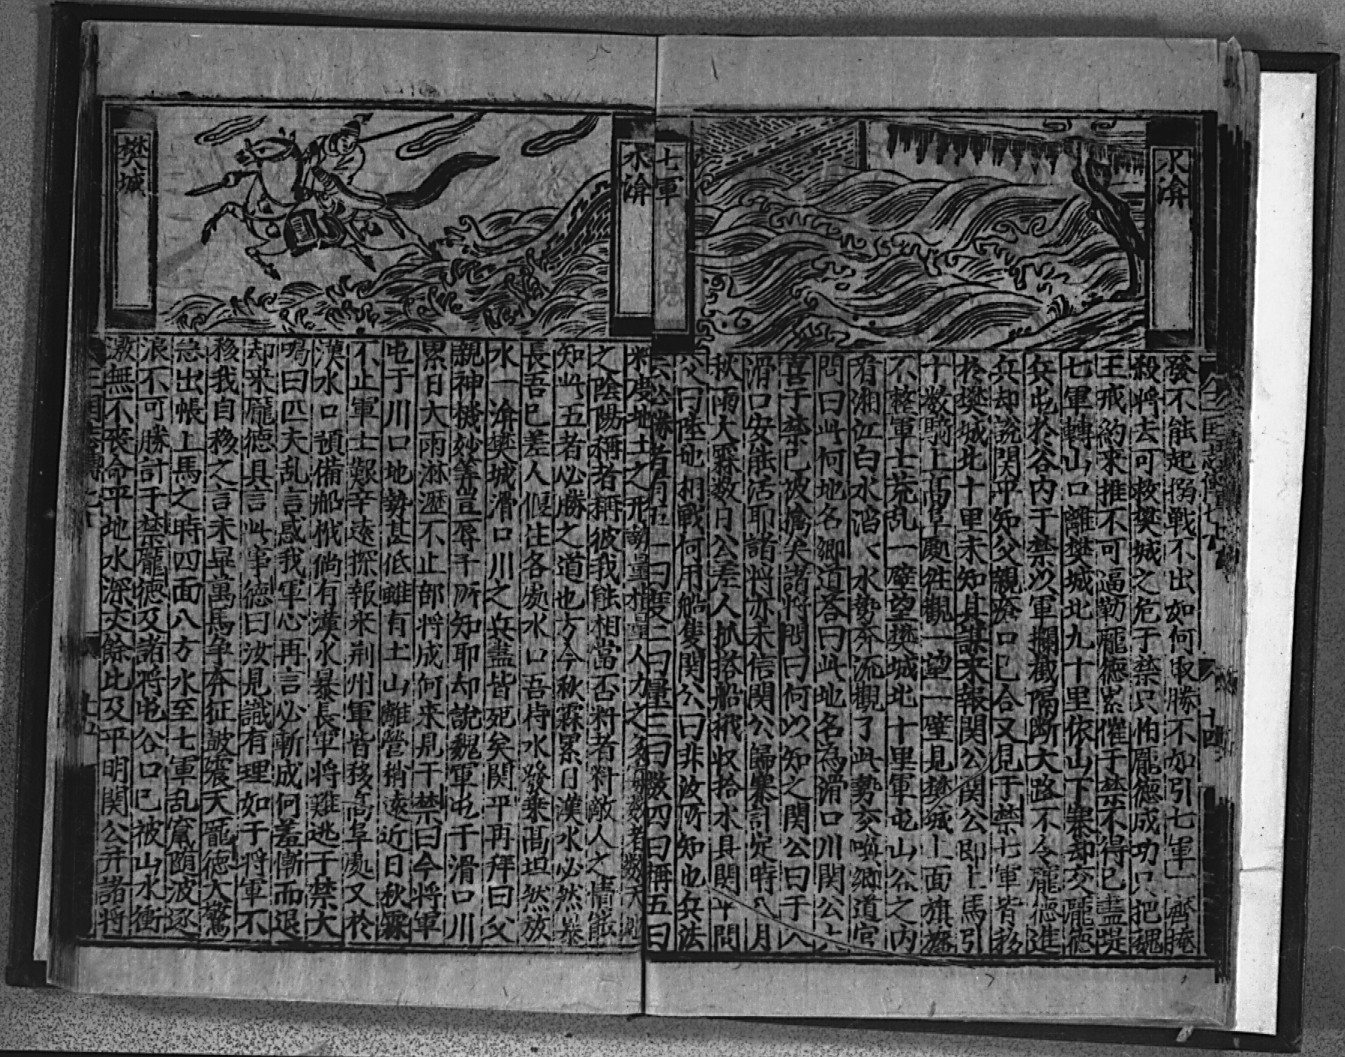 水渰
七軍
發不能起搦戰不出如何取勝不如引七軍一齊掩
殺將去可救樊城之危于禁只怕龐德成功只把魏
王戒約來推不可逼勒龐德累催于禁不得已盡提
七軍轉山口離樊城北九十里依山下寨却交龐德
兵屯於谷内于禁以軍攔截隔斷大路不令龐德進
兵却說関平知父親瘡口已合又見于禁七軍皆移
於樊城北十里未知其謀来報関公関公即上馬引
十数騎上高阜處徃觀一望一壁見樊城上面旗旛
不整軍士荒乱一壁望樊城北十里軍屯山谷之内
看湘江白水滔滔水勢奔流觀了此勢交喚鄉道官
問曰此何地名鄉道答曰此地名為滑口川関公大
喜于禁已被擒矣諸將問曰何以知之関公曰于入
滑口安能活耶諸将亦未信関公歸寨計定時八月
秋雨大霖数日公差人扒搭船栰収拾水具関平問
父曰陸地相戰何用船隻関公曰非汝所知也兵法
云必勝者有五一曰度二曰量三曰数四曰稱五曰
水渰
樊城
料度地土之形勢量相量人力之多寡数者数天地
之陰陽稱者稱彼我能相當否料者料敵人之情能
知此五者必勝之道也方今秋霖累日漢水必然暴
長吾已差人偃住各處水口吾待水發乗高坦然放
水一渰樊城滑口川之兵盡皆死矣関平再拜曰父
親神機妙筭豈辱子所知耶却說魏軍屯于滑口川
累日大雨淋瀝不止部将成何来見于禁曰今将軍
屯于川口地勢甚低雖有土山離營稍遠近日秋霖
不止軍士艱辛遠探報来荆州軍皆移高阜處又於
漢水口預備船栰倘有漢水暴長軍将難逃于禁大
喝曰匹夫乱言惑我軍心再言必斬成何羞慚而退
却来龐德具言此事德曰汝見識有理如于将軍不
移我自移之言未畢萬馬争奔征皷震天龐德大驚
急出帳上馬之時四面八方水至七軍乱竄随波逐
浪不可勝計于禁龐德及諸将屯谷口已被山水衝
激無不喪命平地水深丈餘比及平明関公并諸将